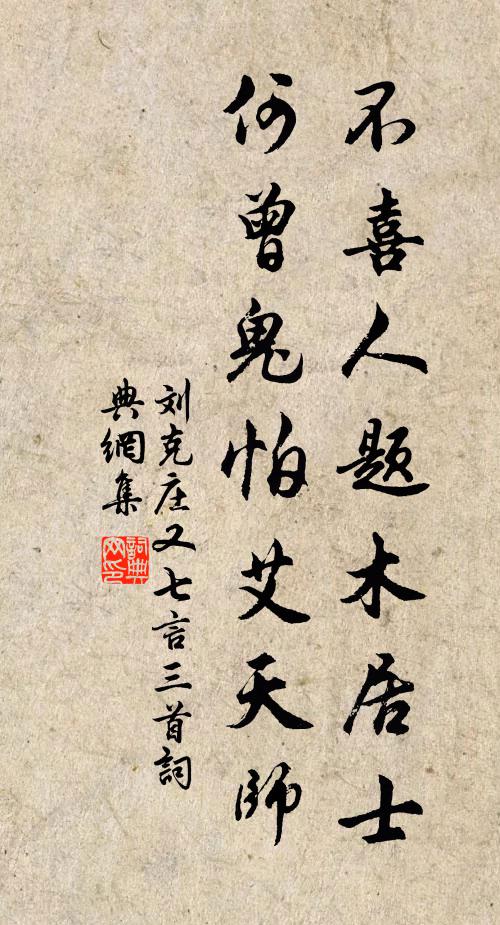 不喜人题木居士
何曾鬼怕艾天師
刘克庄又七言三首詞
典網集
詞典
网印